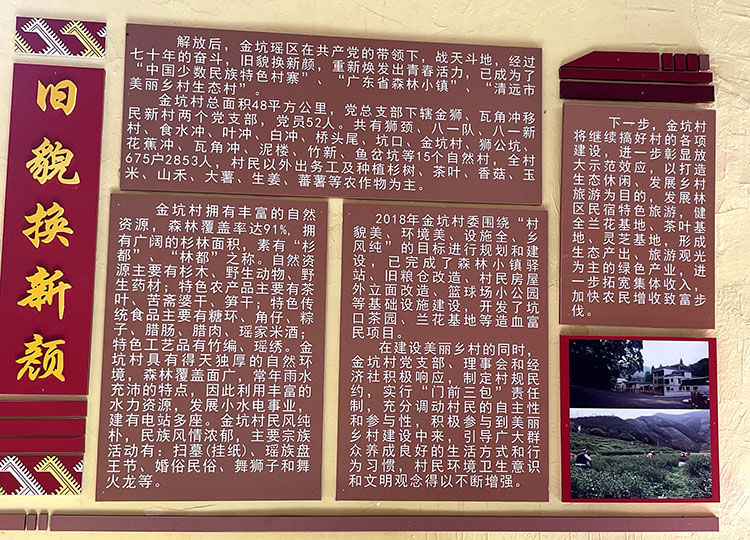 旧貌换新颜
解放后，金坑瑶区在共产党的带领下，战天斗地，经过
七十年的奋斗，旧貌换新颜，重新焕发出青春活力，已成为了
“中国少数民族特色村寨”、“广东省森林小镇”、“清远市
美丽乡村生态村”。
金坑村总面积48平方公里，党总支部下辖金狮、瓦角冲移
民新村两个党支部，党员52人。共有狮颈、八一队、八一新
村、食水冲、叶冲、白冲、桥头尾、坑口、金坑村、狮公坑、
花蕉冲、瓦角冲、泥楼、竹新、鱼岔坑等15个自然村，全村
675户2853人，村民以外出务工及种植杉树、茶叶、香菇、玉
米、山禾、大薯、生姜、蕃薯等农作物为主。
金坑村拥有丰富的自然
资源，森林覆盖率达91%，拥
有广阔的杉林面积，素有“杉
都”、“林都”之称。自然资
源主要有杉木、野生动物、野
生药材；特色农产品主要有茶
叶、苦斋婆干、笋干；特色传
统食品主要有糖环、角仔、粽
子、腊肠、腊肉、瑶家米酒；
特色工艺品有竹编、瑶绣。金
坑村具有得天独厚的自然环
境，森林覆盖面广，常年雨水
充沛的特点，因此利用丰富的
水力资源，发展小水电事业，
建有电站多座。金坑村民风纯
朴，民族风情浓郁，主要宗族
活动有：扫墓(挂纸)、瑶族盘
王节、婚俗民俗、舞狮子和舞
火龙等。
2018年金坑村委围绕“村
貌美、环境美、设施全、乡
风纯”的目标进行规划和建
设，已完成了森林小镇驿
站、旧粮仓改造、村民房屋
外立面改造、篮球场小公园
等基础设施建设，开发了坑
口茶园、兰花基地等造血富
民项目。
在建设美丽乡村的同时，
金坑村党支部、理事会和经
济社积极响应，制定村规民
约，实行“门前三包”责任
制，充分调动村民的自主性
和参与性，积极参与到美丽
乡村建设中来，引导广大群
众养成良好的生活方式和行
为习惯，村民环境卫生意识
和文明观念得以不断增强。
下一步，金坑村
将继续搞好村的各项
建设，进一步彰显放
大示范效应，以打造
生态休闲、发展乡村
旅游为目的，发展林
区民宿特色旅游，健
全兰花基地、茶叶基
地、灵芝基地，形成
生态产出、旅游观光
为主的绿色产业，进
一步拓宽集体收入，
加快农民增收致富步
伐。